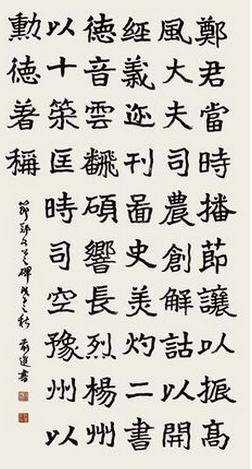 鄭君當時播節讓以振高
風大夫司農創解詁以開
經義迹刊啚史美灼二書
徳音雲飜碩響長烈楊州
以十策匡時司空豫州以
勳徳著稱
節鄭文公碑 秋 書